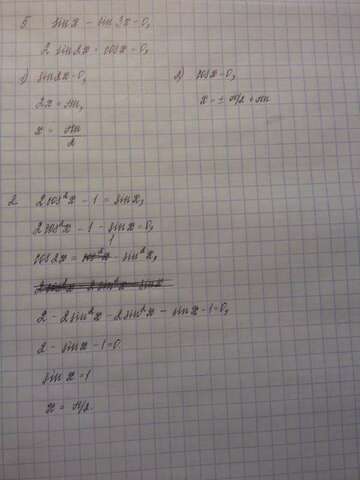 5. sin x - sin 3x = 0,
2 sin 2x · cos x = 0,
1) sin 2x = 0, 2) cos x = 0,
2x = πn, x = ± π/2 + πn
x = πn/2
2. 2cos²x - 1 = sin x,
2cos²x - 1 - sin x = 0,
cos 2x = 1 - sin²x,
2 - 2sin²x - 2sin²x - sin x - 1 = 0,
2 - sin x - 1 = 0
sin x = 1
x = π/2